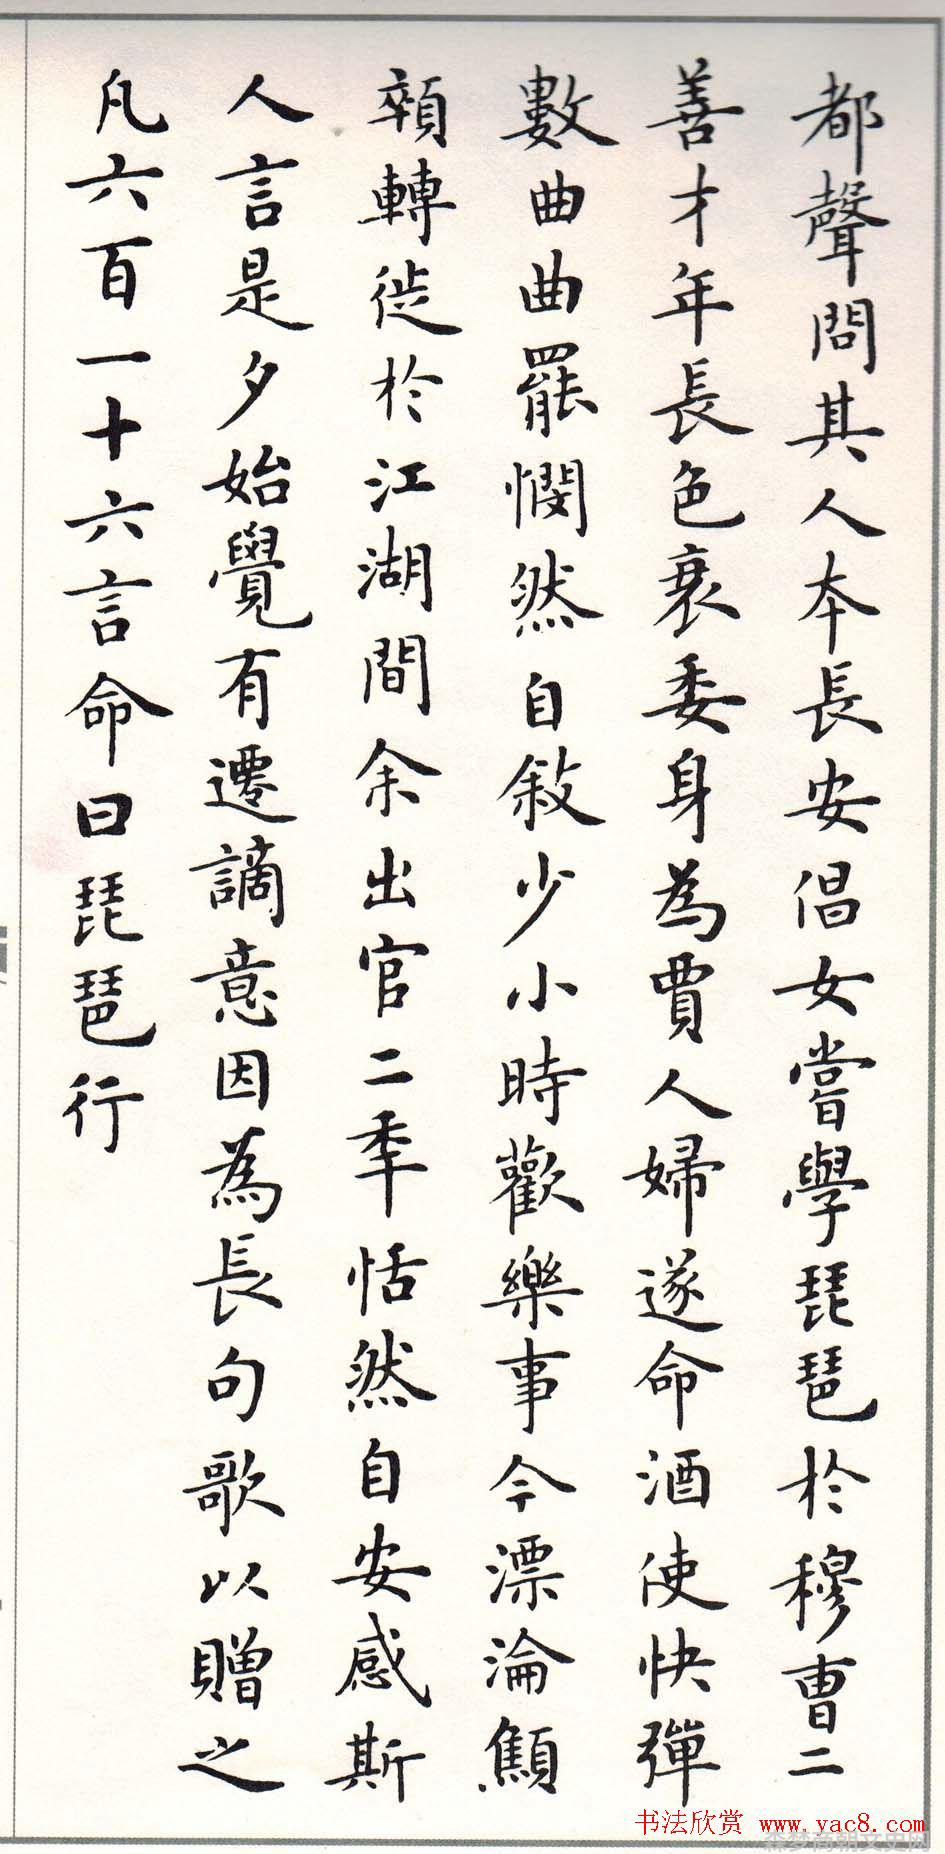 都聲問其人本長安倡女嘗學琵琶於穆曹二
善才年長色衰委身為賈人婦遂命酒使快彈
數曲曲罷憫然自敘少小時歡樂事今漂淪顦
顇轉徙於江湖間余出官二秊恬然自安感斯
人言是夕始覺有遷謫意因為長句歌以贈之
凡六百一十六言命曰琵琶行
书法欣赏 www.yac8.com